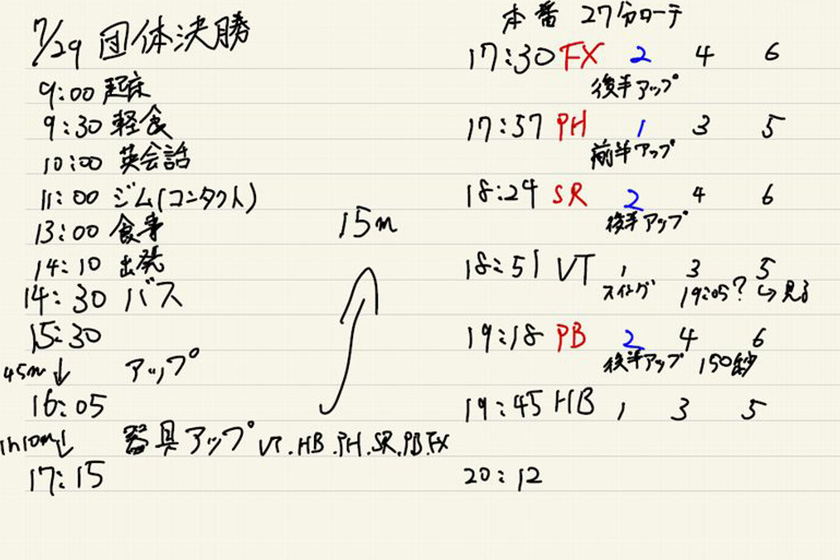 7/29 団体決勝
9:00 起床
9:30 軽食
10:00 英会話
11:00 ジム(コンタクト)
13:00 食事
14:10 出発
14:30 バス
15:30
45m↓ アップ
16:05
1h10m↓ 器具アップ VT.HB.PH.SR.PB.FX
17:15
15m
本番 27分ローテ
17:30 FX 2 4 6
後半アップ
17:57 PH 1 3 5
前半アップ
18:24 SR 2 4 6
後半アップ
18:51 VT 1 3 5
スイング 19:05? ↪見る
19:18 PB 2 4 6
後半アップ 150秒
19:45 HB 1 3 5
20:12